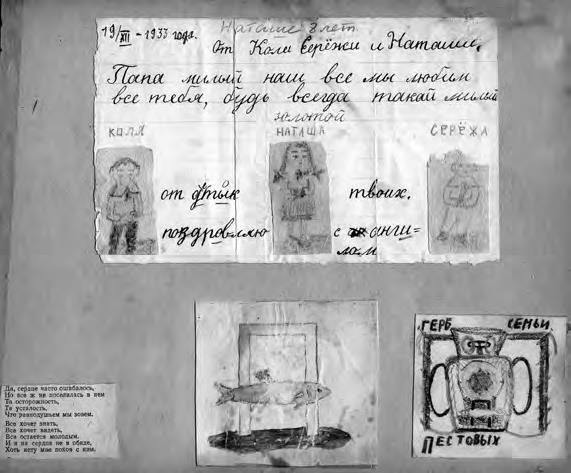 19/XII - 1933 года.
Наташе 8 лет
От Коли Серёжи и Наташи.
Папа милый наш все мы любим
все тебя, будь всегда такай милый
золотой
КОЛЯ
НАТАША
СЕРЁЖА
от дтык твоих.
поздровляю с анги=
лом
ГЕРБ СЕМЬИ
ПЕСТОВЫХ
Да, сердце часто ошибалось,
Но все ж не поселилась в нем
Та осторожность,
Та усталость,
Что равнодушьем мы зовем.
Все хочет знать,
Все хочет видеть,
Все остается молодым.
И я на сердце не в обиде,
Хоть нету мне покоя с ним.